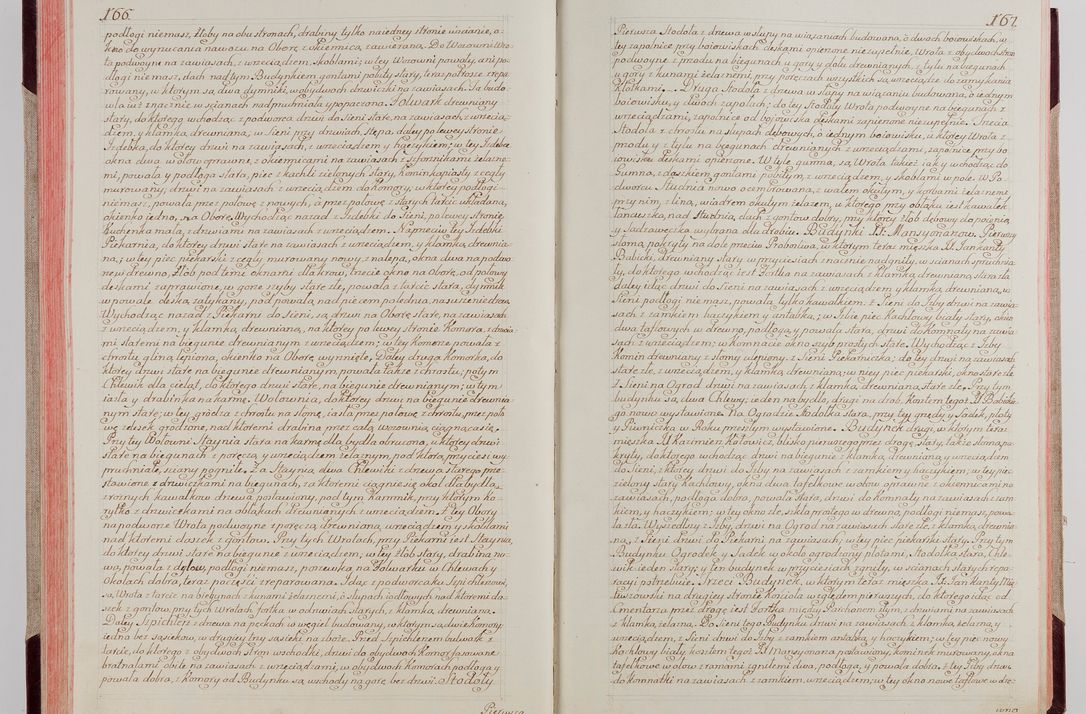 166.
podłogi niemasz, żłoby na obu stronach, drabiny tylko na iedney stronie wścianie, o-
kno do wyrucania nawozu na Oborę z okiennicą zawierane. Do Wozowni Wro-
ta podwoyne na zawiasach, z wrzeciądzem, skoblami; w tey Wozowni powały, ani po-
dłogi niemasz, dach nad tym Budynkiem gontami pobity stary, teraz potrosze zrepe-
rowany, w którym są dwa dymniki, w obydwóch drzwiczki na zawiasach. Ta budo-
wla iuż znacznie w ścianach nadpruchniała y popaczona. Folwark drewniany
stary, do którego wchodząc z podworca drzwi do Sieni stare, na zawiasach, z wrzecią-
dzem, y klamką drewnianą, w Sieni przy drzwiach Stępa, daley po lewey stronie
Izdebka, do którey drzwi na zawiasach, z wrzeciądzem y haczykiem; w tey Izdebce
okna dwa w ołow oprawne, z okiennicami na zawiasach z Sfornikami żelazne-
mi, powała y podłoga stara, piec z kachli zielonych stary, kominkapiasty z cegły
murowany, drzwi na zawiasach z wrzeciądzem do komory, w którey podłogi
niemasz, powała przez połowę z nowych, a przez połowę z starych tarcic układana,
okienko iedno, na Oborę. Wychodząc nazad z Izdebki do Sieni, po lewey stronie
kuchenka mała, z drzwiami na zawiasach z wrzeciądzem. Naprzeciw tey Izdebki
Piekarnia, do którey drzwi stare na zawiasach z wrzeciądzem, y klamką drewnia-
ną; w tey piec piekarski z cegły murowany nowy, z nalepą, okna dwa na podwo-
rzec w drewno, żłob pod temi oknami dla krow, trzecie okno na Oborę, od połowy
deskami zaprawione, w gorze szyby stare złe, powała z tarcic stara, dymnik
w powale deską zatykany, pod powałą nad piecem polednia na suszenie drew.
Wychodząc nazad z Piekarni do Sieni, są drzwi na Oborę stare, na zawiasach
z wrzeciądzem, y klamką drewnianą, na którey po lewey stronie Komora, z drzwia-
mi staremi na biegunie drewnianym z wrzeciądzem; w tey Komorze powała z
chrostu, gliną lepiona, okienko na Oborę wyrznięte. Daley druga Komorka, do
którey drzwi stare na biegunie drewnianym, powała także z chrostu; potym
Chlewik dla cieląt, do którego drzwi stare, na biegunie drewnianym; w tym
iasła y drabinka na karmę. Wołownia, do którey drzwi na biegunie drewnia-
nym stare; w tey grodza z chrostu na słomę, iasła przez połowę z chrostu, przez poło-
wę z desek grodzone, nad któremi drabina przez całą wozownią ciągnąca się.
Przy tey Wołowni Staynia stara na karmę dla bydła obrucona, u którey drzwi
stare na biegunach z poręczą, y wrzeciądzem żelaznym, pod którą, przycieści wy-
pruchniałe, ściany pogniłe. Za Staynią dwa Chlewiki z drzewa starego prze-
stawione z drzwiczkami na biegunach, za któremi ciągnie się okoł dla bydła
z roznych kawałkow drzewa postawiony, pod tym karmnik, przy którym ko-
rytko z drzwiczkami na obłąkach drewnianych z wrzeciądzem. Z tey Obory
na podworze Wrota podwoyne z poręczą drewnianą, wrzeciądzem y skoblami
nad któremi daszek z gontow. Przy tych Wrotach, przy Piekarni iest Staynia,
do którey drzwi stare na biegunie z wrzeciądzem; w tey żłob stary, drabina no-
wa, powała z dylow, podłogi niemasz, poszewka na Folwarku w Chlewach y
Okołach dobra, teraz poczęści zreparowana. Idąc z podworca ku Szpichlerzowi,
są Wrota z tarcic na biegunach z kunami żelaznemi, o słupach iodłowych nad któremi da-
szek z gontow, przy tych Wrotach fortka w odrzwiach starych, z klamką drewnianą.
Daley Szpichlerz z drzewa na pęckach w węgieł budowany, w którym są dwie komory
iedna bez sąsiekow, w drugiey trzy sąsieki na zboże. Przed Szpichlerzem budwark z
tarcic, do którego z obydwoch stron wschodki, drzwi do obydwoch Komor fasowane
bratnalami obite na zawiasach z wrzeciądzami, w obydwoch Komorach podłoga y
powała dobra, z Komory od Budynku są wschody na gorę bez drzwi. Stodoły
Pierwsza
167.
Pierwsza Stodoła z drzewa w słupy na wiązaniach budowana, o dwoch boiowiskach, w
tey zapolnice przy boiowiskach deskami opienzone niezupełnie, Wrota z obydwoch stron
podwoyne z przodu na biegunach u gory y dołu drewnianych, z tyłu na biegunach
u gory z kunami żelaznemi, przy poręczach wszystkich są wrzeciądze do zamykania
kłotkami. Druga Stodoła z drzewa w słupy na wiązaniu budowana, o iednym
boiowisku, y dwoch zapolach; do tey Stodoły Wrota podwoyne na biegunach z
wrzeciądzami, zapolnice od boiowiska deskami zapierzone niezupełnie. Trzecia
Stodoła z chrostu na słupach dębowych, o iednym boiowisku, u którey Wrota z
przodu y z tyłu na biegunach drewnianych z wrzeciądzami, zapolnice przy bo-
iowisku deskami opierzone. W tyle gumna, są Wrota takież iak y wchodząc do
Gumna, z daszkiem gontami pobitym, z wrzeciądzem, y skoblami w pole. W Po-
dworcu Studnia nowo ocembrowana, z wałem okutym, y korbami żelaznemi
przy nim, z liną, wiadrem okutym żelazem, u którego przy obłąku iest kawałek
łańcuszka, nad Studnią dach z gontow dobry, przy którey żłob dębowy do poienia
y Sadzaweczka wybrana dla drobiu. Budynki XX. Mansyonarzow. Pierwszy
słomą pokryty na dole przeciw Probostwa, w którym teraz mieszka X. Jan Kanty
Babicki, drewniany stary w przyciesiach znacznie nadgniły, w ścianach spruchnia-
ły, do którego wchodząc iest Fortka na zawiasach z klamką drewnianą stara zła
daley idąc drzwi do Sieni na zawiasach z wrzeciądzem y klamką drewnianą, w
Sieni podłogi niemasz, powała tylko kawałkiem. z Sieni do Izby drzwi na zawia-
sach z zamkiem haczykiem y antabką; w Izbie piec kachlowy biały stary, okna
dwa taflowych w drewno, podłoga y powała stara, drzwi do komnaty na zawia-
sach z wrzeciądzem; w komnacie okno szyb prostych stare. Wychodząc z Izby
komin drewniany z słomy ulepiony. z Sieni Piekarniczka; do tey drzwi na zawiasach
stare złe, z wrzeciądzem, y klamką drewnianą; w niey piec piekarski, okno stare złe
z Sieni na Ogrod drzwi na zawiasach, z klamką drewnianą stare złe. Przy tym
budynku są dwa Chlewy; ieden na bydło, drugi na drob, kosztem tegoż X. Babickie-
go nowo wystawione. Na Ogrodzie Stodołka stara, przy tey grzędy y Sadek, płoty
y Piwniczka w Roku przeszłym wystawione. Budynek drugi, w którym teraz
mieszka X. Kazimierz Kotowicz, blisko pierwszego przez drogę, stary, także słomą po-
kryty, do którego wchodząc drzwi na biegunie z klamką drewnianą, y wrzeciądzem
do Sieni, z którey drzwi do Izby na zawiasach z zamkiem y haczykiem; w tey piec
zielony stary kachlowy, okna dwa tafelkowe w ołow oprawne z okiennicami na
zawiasach, podłoga dobra, powała stara, drzwi do komnaty na zawiasach z zam-
kiem, y haczykiem; w tey okno złe, szkła prostego w drewno, podłogi niemasz, powa-
ła zła. Wyszedłszy z Izby, drzwi na Ogrod na zawiasach stare złe, z klamką drewnia-
ną, z Sieni drzwi do Piekarni na zawiasach; w tey piec piekarski stary. Przy tym
Budynku Ogrodek y Sadek w około ogrodzony płotami, Stodołka stara, Chle-
wik ieden stary; y ten budynek w przyciesiach zgniły, w ścianach starych repe-
racyi potrzebuie. Trzeci Budynek, w którym teraz mieszka X. Jan Kanty Wi-
liszowski na drugiey stronie Kościoła względem pierwszych, do którego idąc od
Cmentarza przez drogę iest Fortka między Parchanem złym, z drzwiami na zawiasach
z klamką żelazną. Do Sieni tego Budynku drzwi na zawiasach z klamką żelazną, y
wrzeciądzem, z Sieni drzwi do Izby z zamkiem antabką y haczykiem; w tey piec nowy
kachlowy biały kosztem tegoż X. Mansyonarza postawiony, kominek murowany, okna
tafelkowe w ołow z ramami zgniłemi dwa, podłoga, y powała dobra. z tey Izby drzwi
do Komnatki na zawiasach z zamkiem, wrzeciądzem; w tey okno nowe taflowe w dre-
wno